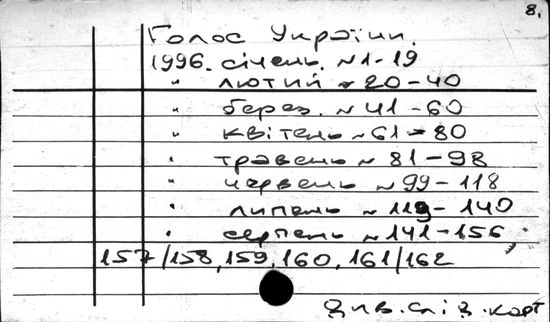 8.
Голос України.
1996. січень. N 1-19
" лютий N 20-40
" берез. N 41-60
" квітень N 61-80
" травень N 81-98
" червень N 99-118
" липень N 119-140
" серпень N 141-156,
157/158, 159, 160, 161/162
Див. слід. карт